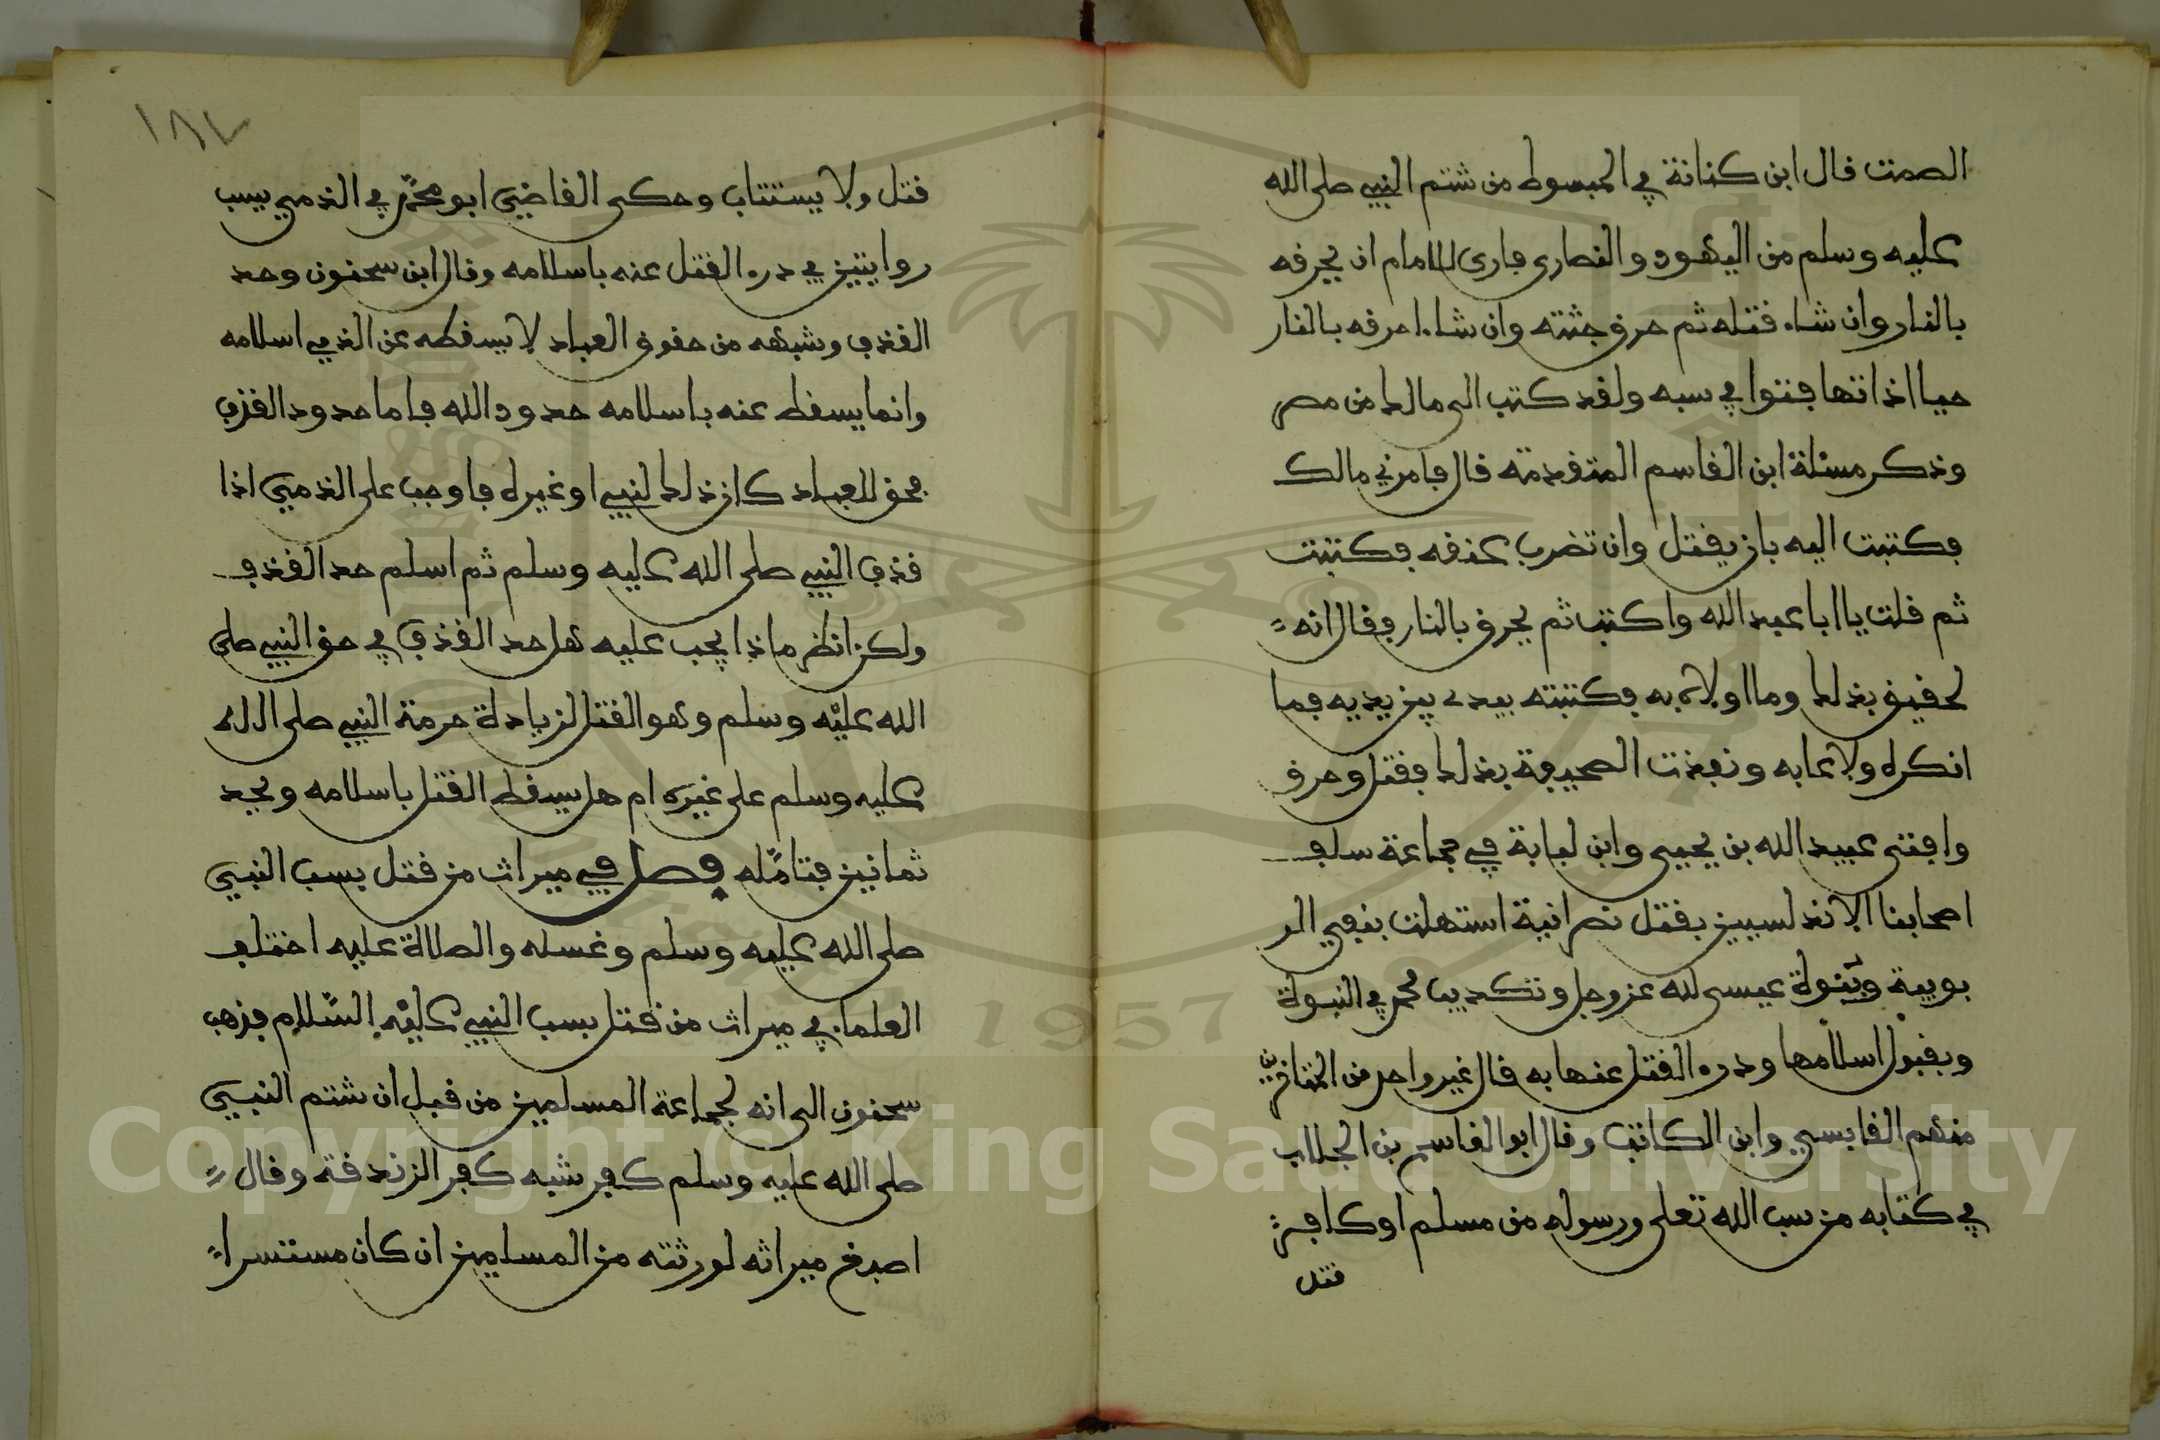 الصمت قال ابن كنانة في المبسوط من شتم النبي صلى الله
عليه وسلم من اليهود والنصارى فارى للامام ان يحرقه
بالنار وان شاء قتله ثم حرق جثته وان شاء احرقه بالنار
حيا اذا تهافتوا في سبه ولقد كتب الى مالك من مصر
وذكر مسئلة ابن القاسم المتقدمة قال فامرني مالك
فكتبت اليه بان يقتل وان تضرب عنقه فكتبت
ثم قلت يا ابا عبد الله واكتب ثم يحرق بالنار فقال انه
لحقيق بذلك وما اولاه به فكتبته بيدي بين يديه فما
انكره ولا عابه ونفذت الصحيفة بذلك فقتل وحرق
وافتى عبيد الله بن يحيى وابن لبابة في جماعة سلف
اصحابنا الاندلسيين بقتل نصرانية استهلت بنفي الر
بوبية وبنوة عيسى لله عز وجل وتكذيب محمد في النبوة
وبقبول اسلامها ودرء القتل عنها به قال غير واحد من المتاخرين
منهم القابسي وابن الكاتب وقال ابو القاسم بن الجلاب
في كتابه من سب الله تعلى ورسوله من مسلم او كافر
قتل
١٨٧
قتل ولا يستتاب وحكى القاضي ابو محمد في الذمي يسب
روايتين في درء القتل عنه باسلامه وقال ابن سحنون وحد
القذف وشبهه من حقوق العباد لا يسقطه عن الذمي اسلامه
وانما يسقط عنه باسلامه حدود الله فاما حدود القذف
فحق للعباد كان ذلك لنبي او غيره فاوجب على الذمي اذا
قذف النبي صلى الله عليه وسلم ثم اسلم حد القذف
ولكن انظر ماذا يجب عليه هل حد القذف في حق النبي صلى
الله عليه وسلم وهو القتل لزيادة حرمة النبي صلى الله
عليه وسلم على غيره ام هل يسقط القتل باسلامه ويحد
ثمانين فتامله فصل في ميراث من قتل بسب النبي
صلى الله عليه وسلم وغسله والصلاة عليه اختلف
العلماء في ميراث من قتل بسب النبي عليه السلام فذهب
سحنون الى انه لجماعة المسلمين من قبل ان شتم النبي
صلى الله عليه وسلم كفر شبه كفر الزندقة وقال
اصبغ ميراثه لورثته من المسلمين ان كان مستسرا
1957
Copyright © King Saud University